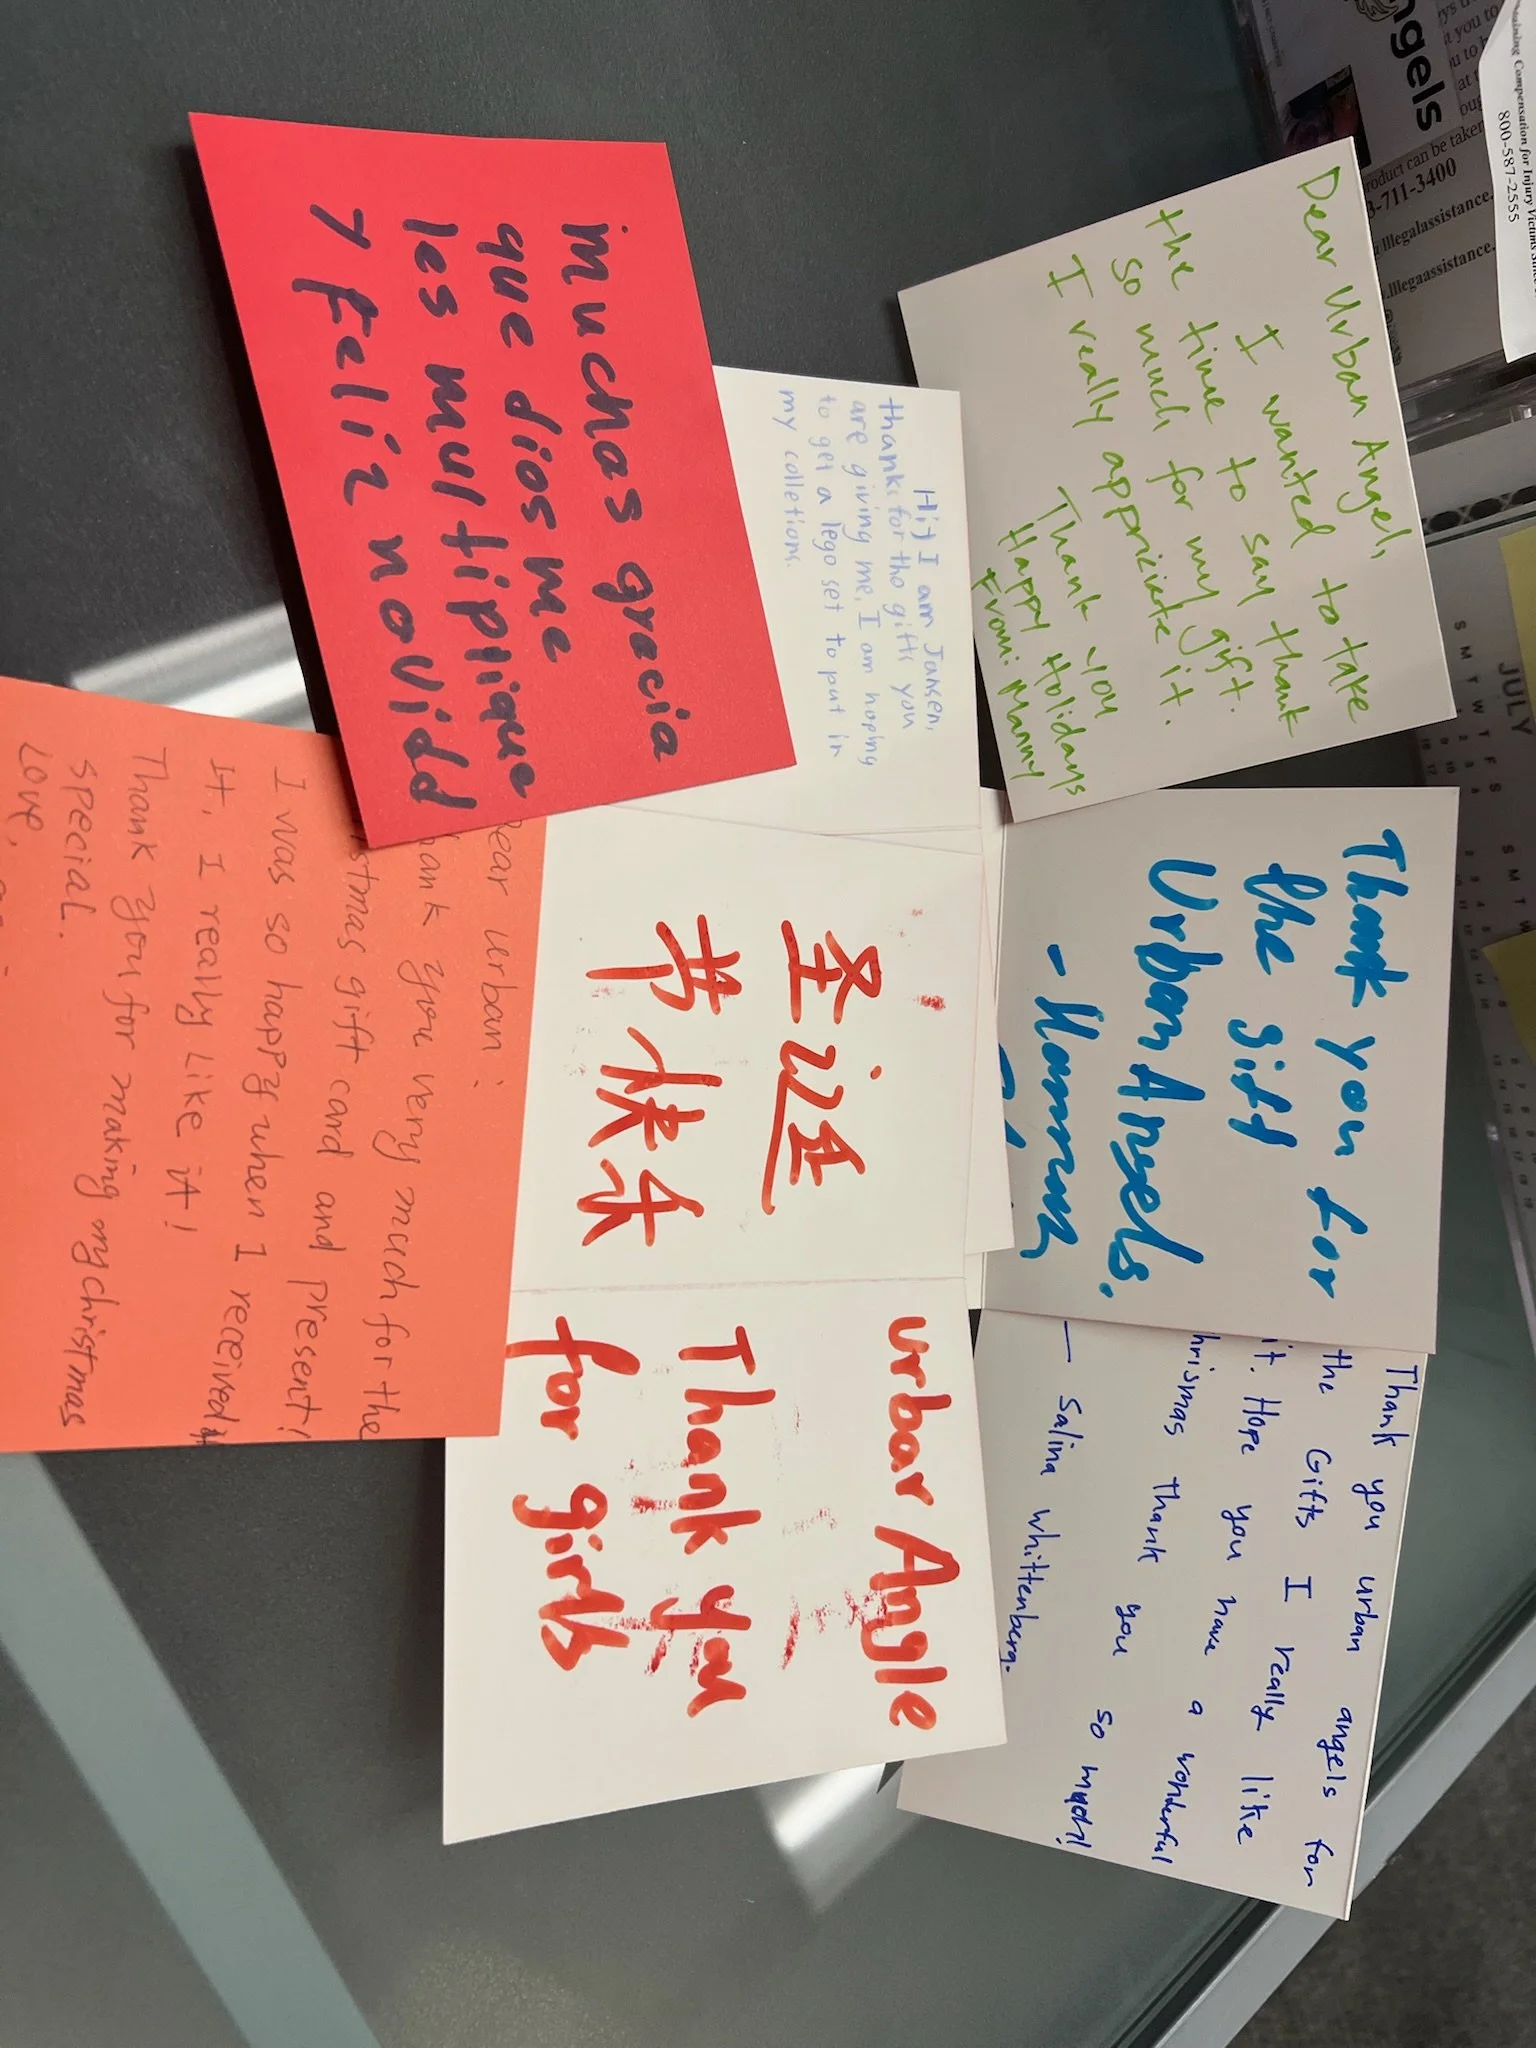 Dear Urban Angel,
I wanted to take
the time to say thank
so much for my gift.
I really appriciate it.
Thank you
Happy Holidays
From: Manny
Thank you for
the gift
Urban Angels.
Thank you urban angels for
the Gifts I really like
it. Hope you have a wonderful
hrismas thank you so much!
— Salina Whittenberg.
Hi! I am Jansen,
thanks for the gifts you
are giving me. I am hoping
to get a lego set to put in
my colletions.
圣诞
节快乐
urbar Angle
Thank you
for girls
muchas gracia
que dios me
les multiplique
y feliz novidd
ear urban:
ank you very much for the
stmas gift card and present!
I was so happy when I received
it, I really like it!
Thank you for making my christmas
special.
Love,
ngels
800-587-2555
3-711-3400
JULY
S M T W T F S
S M T W